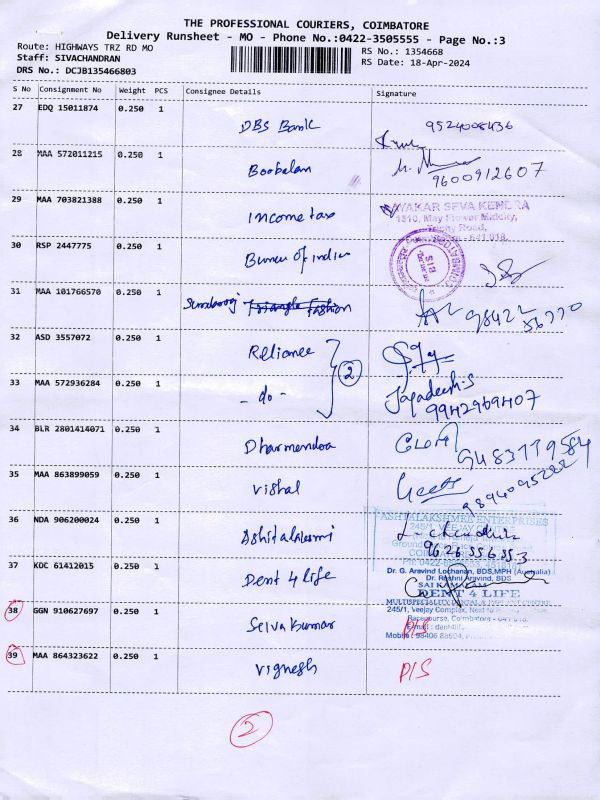 THE PROFESSIONAL COURIERS, COIMBATORE
Delivery Runsheet - MO - Phone No.:0422-3505555 - Page No.:3
Route: HIGHWAYS TRZ RD MO
Staff: SIVACHANDRAN
DRS No.: DCJB135466803
RS No.: 1354668
RS Date: 18-Apr-2024
S No Consignment No Weight PCS Consignee Details Signature
27 EDQ 15011874 0.250 1 DBS Bank 9524008436
28 MAA 572011215 0.250 1 Boobalan 9600912607
29 MAA 703821388 0.250 1 Income tax
AYAKAR SEVA KENDRA
1510, May Flower Midcity,
Trinity Road,
641 018.
30 RSP 2447775 0.250 1 Bureau Of Indian
BIS
31 MAA 101766570 0.250 1 Sundaroj Triangle Fashion 98422 56770
32 ASD 3557072 0.250 1 Reliance
2
33 MAA 572936284 0.250 1 - do - Jayadeesh.S
9942969407
34 BLR 2801414071 0.250 1 Dharmendra 9483779584
35 MAA 863899059 0.250 1 Vishal Geetha 9894095222
36 NDA 906200024 0.250 1 Ashtalakshmi
ASHTALAKSHMEE ENTERPRISES
245/1, VEEJAY
9626556553
37 KDC 61412015 0.250 1 Dent 4 life
Dr. G. Aravind Lochanan, BDS,MPH (Australia)
Dr. Roshni Aravind, BDS
SAI KAMALAM
DENT 4 LIFE
MULTISPECIALITY DENTAL & IMPLANT CENTRE
245/1, Veejay Complex,
Racecourse, Coimbatore - 641 018.
38 GGN 910627697 0.250 1 Selvakumar P/S
39 MAA 864323622 0.250 1 Vignesh P/S
2